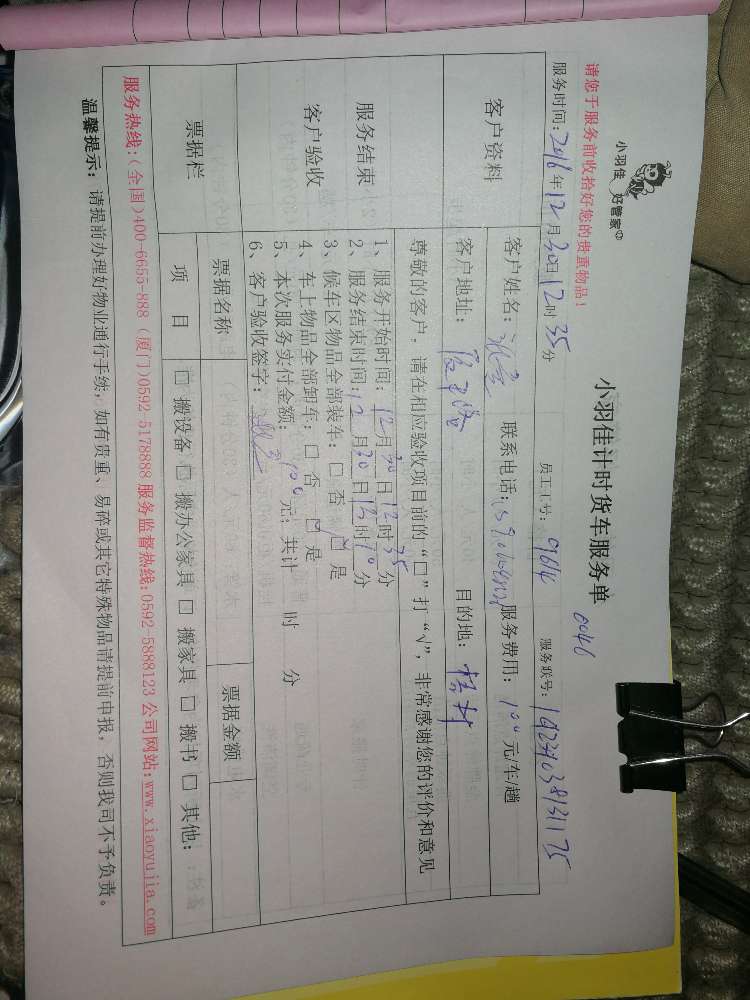 小羽佳 好管家
小羽佳计时货车服务单
0046
请您于服务前收拾好您的贵重物品!
服务时间:2016年12月30日12时35分 员工工号:9614 服务联号:
客户资料
客户姓名: 联系电话: 服务费用:100元/车/趟
客户地址: 目的地:
尊敬的客户,请在相应验收项目前的“□”打“√”,非常感谢您的评价和意见
服务结束
客户验收
1、服务开始时间:12月30日12时35分
2、服务结束时间:12月30日 时 分
3、候车区物品全部装车:□否 □是
4、车上物品全部卸车:□否 □是
5、本次服务实付金额:100元;共计 时 分
6、客户验收签字:
票据栏
票据名称 票据金额
项 目 □搬设备 □搬办公家具 □搬家具 □搬书 □其他:
服务热线:(全国)400-6655-888 (厦门)0592-5178888 服务监督热线:0592-5888123 公司网站:www.xiaoyujia.com
温馨提示:请提前办理好物业通行手续,如有贵重、易碎或其它特殊物品请提前申报,否则我司不予负责。